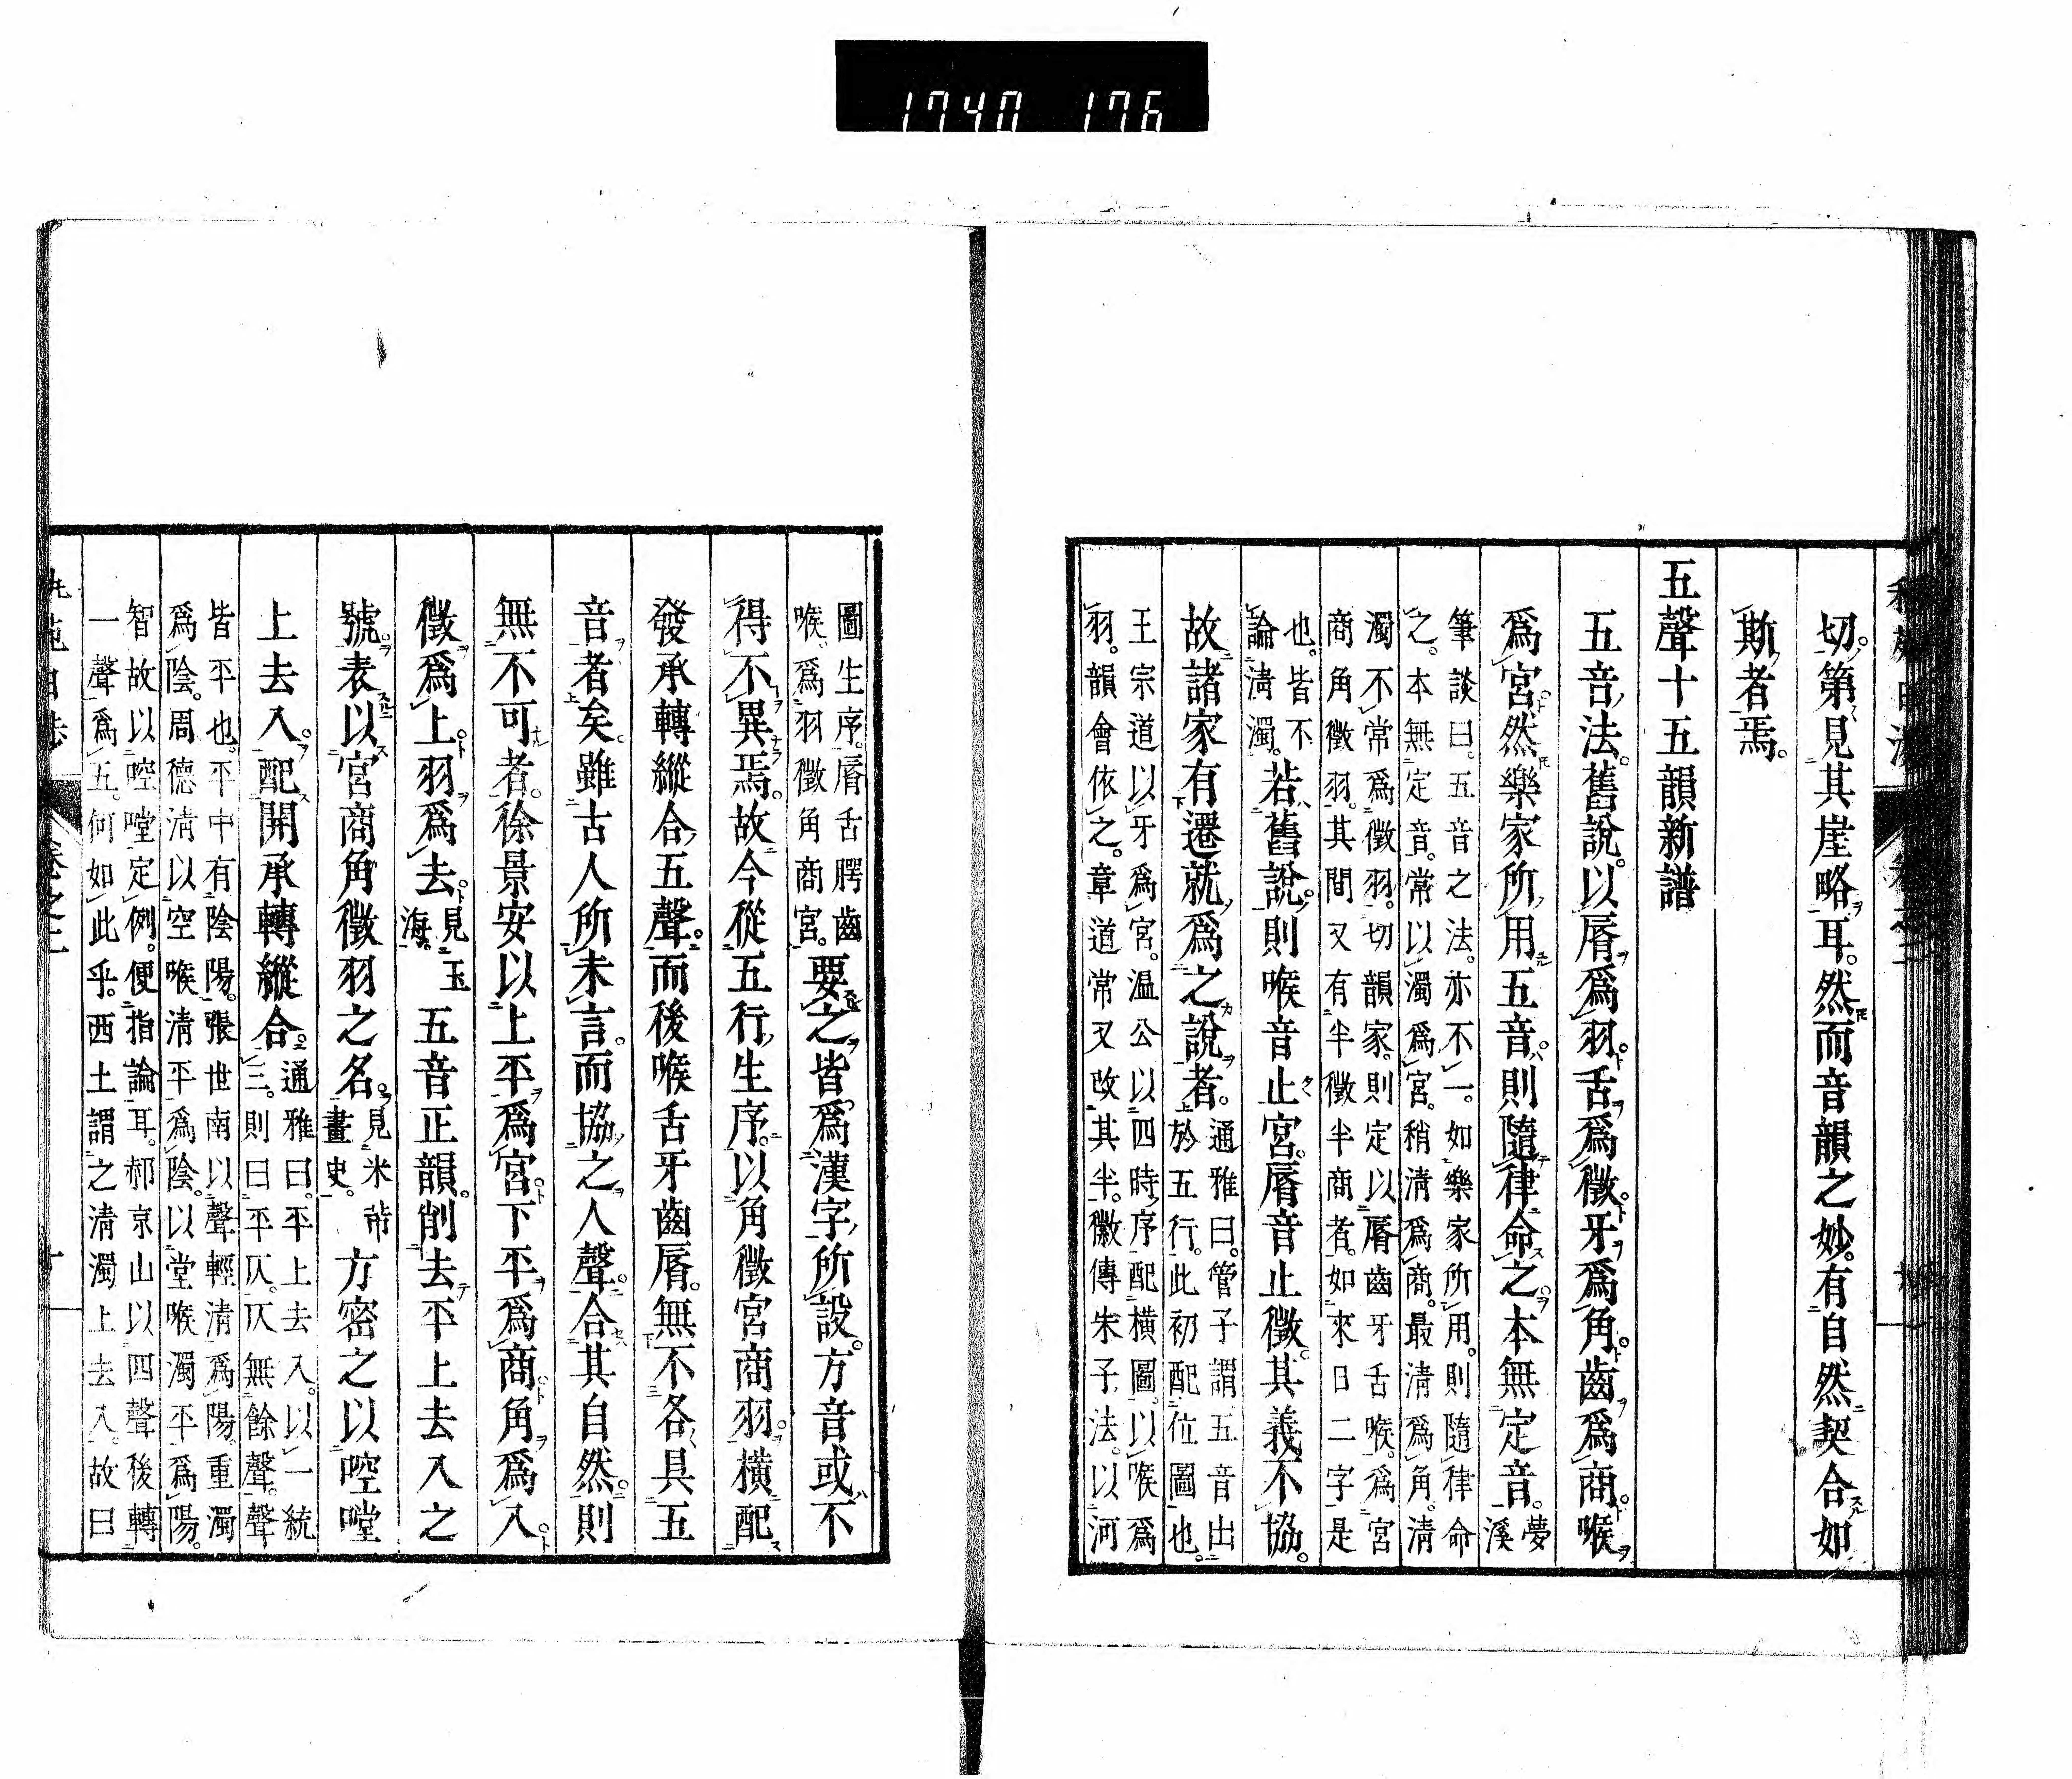 1740 176
切第見其崖略耳。然而音韻之妙。有自然契合如
斯者焉。
五聲十五韻新譜
五音法。舊說。以脣爲羽。舌爲徵。牙爲角。齒爲商。喉
爲宮。然樂家所用五音。則隨律命之。本無定音。夢溪
筆談曰。五音之法。亦不一。如樂家所用。則隨律命
之。本無定音。常以濁爲宮。稍清爲商。最清爲角。清
濁不常爲徵羽。切韻家。則定以脣齒牙舌喉。爲宮
商角徵羽。其間又有半徵半商者。如來日二字是
也。皆不
論清濁。若舊說。則喉音止宮。脣音止徵。其義不協。
故諸家有遷就爲之說者。通雅曰。管子謂五音出
於五行。此初配位圖也。
王宗道以牙爲宮。温公以四時序配橫圖。以喉爲
羽。韻會依之。章道常又改其半。徽傳朱子法。以河
圖生序。脣舌腭齒
喉。爲羽徵角商宮。要之。皆爲漢字所設。方音或不
得不異焉。故今從五行生序。以角徵宮商羽。橫配
發承轉縱合五聲。而後喉舌牙齒脣。無不各具五
音者矣。雖古人所未言。而協之人聲。合其自然。則
無不可者。徐景安以上平爲宮。下平爲商。角爲入。
徵爲上。羽爲去。見玉海。五音正韻。削去平上去入之
號。表以宮商角徵羽之名。見米芾畫史。方密之以啌嘡
上去入。配開承轉縱合。通雅曰。平上去入。以一統
三。則曰平仄。仄無餘聲。聲
皆平也。平中有陰陽。張世南以聲輕清爲陽。重濁
爲陰。周德清以空喉清平爲陰。以堂喉濁平爲陽。
智故以啌嘡定例。便指論耳。郝京山以四聲後轉
一聲爲五。何如此乎。西土謂之清濁上去入。故曰